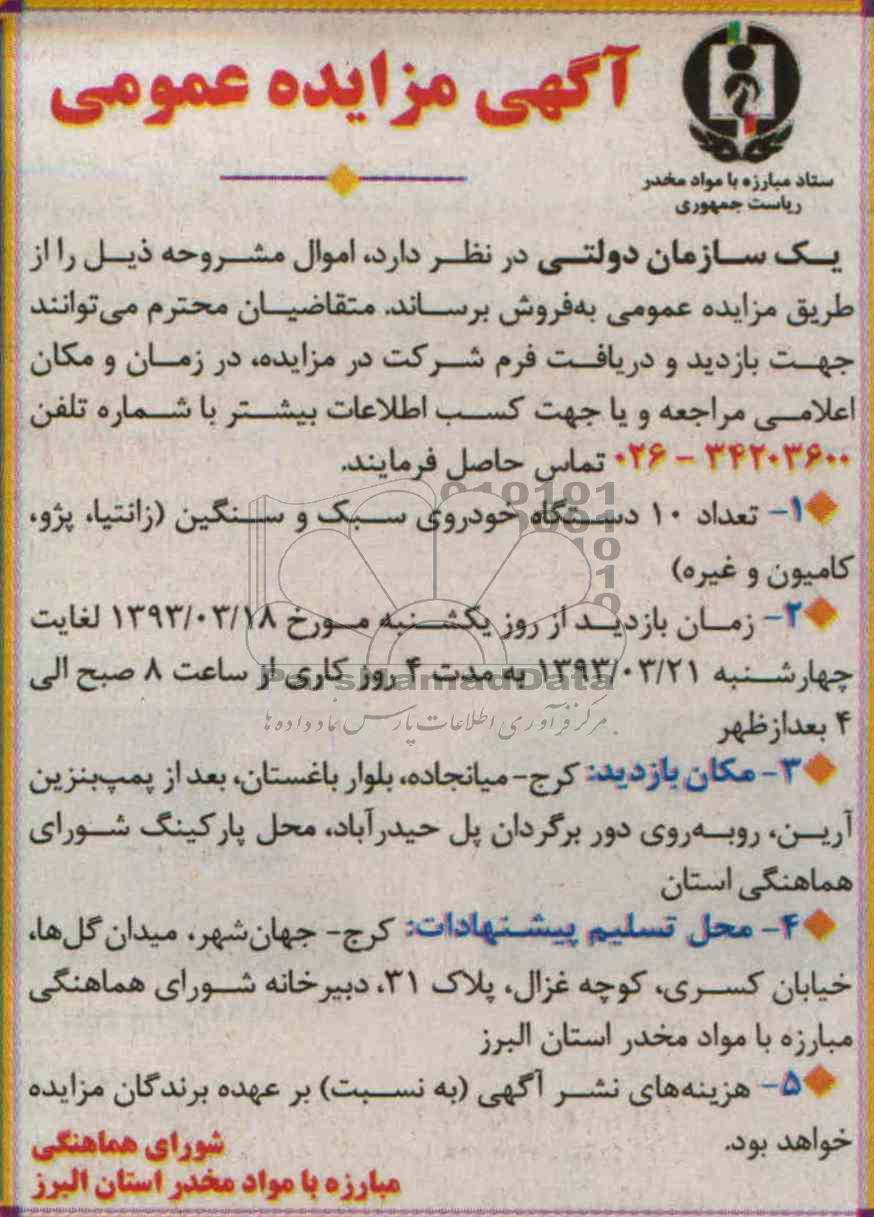 ستاد مبارزه با مواد مخدر
ریاست جمهوری
آگهی مزایده عمومی
یک سازمان دولتی در نظر دارد، اموال مشروحه ذیل را از
طریق مزایده عمومی به‌فروش برساند. متقاضیان محترم می‌توانند
جهت بازدید و دریافت فرم شرکت در مزایده، در زمان و مکان
اعلامی مراجعه و یا جهت کسب اطلاعات بیشتر با شماره تلفن
۳۴۲۰۳۶۰۰ - ۰۲۶ تماس حاصل فرمایند.
۱- تعداد ۱۰ دستگاه خودروی سبک و سنگین (زانتیا، پژو،
کامیون و غیره)
۲- زمان بازدید از روز یکشنبه مورخ ۱۳۹۳/۰۳/۱۸ لغایت
چهارشنبه ۱۳۹۳/۰۳/۲۱ به مدت ۴ روز کاری از ساعت ۸ صبح الی
۴ بعدازظهر
۳- مکان بازدید: کرج-میانجاده، بلوار باغستان، بعد از پمپ‌بنزین
آرین، روبه‌روی دور برگردان پل حیدرآباد، محل پارکینگ شورای
هماهنگی استان
۴- محل تسلیم پیشنهادات: کرج- جهان‌شهر، میدان گل‌ها،
خیابان کسری، کوچه غزال، پلاک ۳۱، دبیرخانه شورای هماهنگی
مبارزه با مواد مخدر استان البرز
۵- هزینه‌های نشر آگهی (به نسبت) بر عهده برندگان مزایده
خواهد بود.
شورای هماهنگی
مبارزه با مواد مخدر استان البرز
ParsNamadData
مرکز فرآوری اطلاعات پارس نماد داده ها